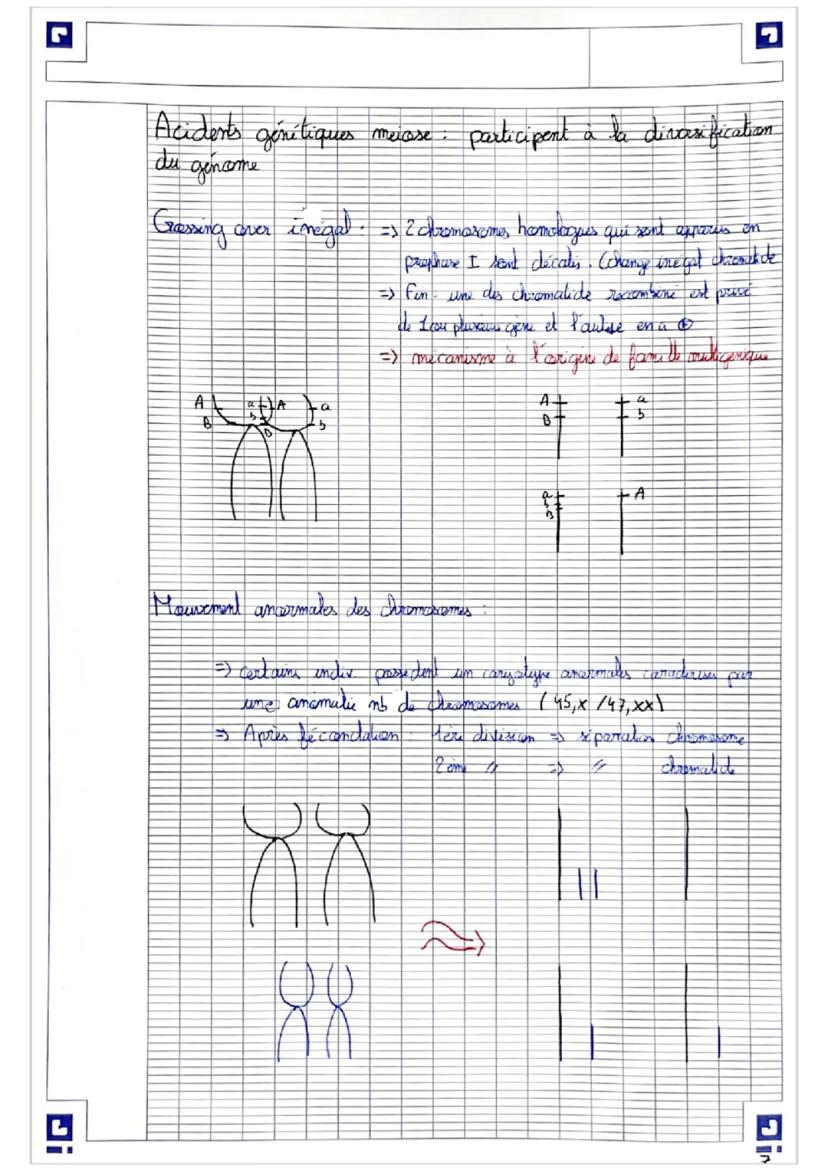 Acidents génétiques meiose : participent à la diversification
du génome
Crossing over inégal : => 2 chromosomes homologues qui sont apparus en
prophase I sont décalés. Échange inégal chromatide
=> Fin : une des chromatide recombiné est privé
de 1 ou plusieurs gène et l'autre en a ⊕
=> mécanisme à l'origine de famille multigénique
A a A a
B b B b
A a
B b
a A
b
B
Mouvement anormales des chromosomes :
=> certains indiv. possèdent un caryotype anormales caractérisés par
une anomalie nb de chromosomes (45,x /47,xx)
=> Après fécondation : 1ère division => séparation chromosome
2ème " => " chromatide
7